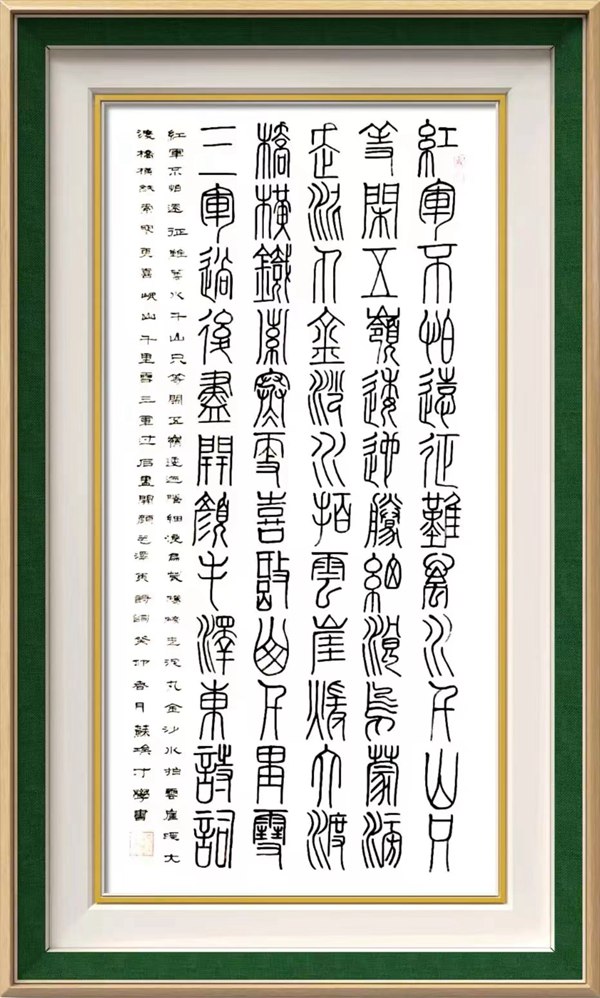 紅軍不怕遠征難萬水千山只
等閑五嶺逶迤騰細浪烏蒙磅
走泥丸金沙水拍雲崖暖大渡
橋橫鐵索寒更喜岷山千里雪
三軍過後盡開顏毛澤東詩詞
紅軍不怕遠征難萬水千山只等閑五嶺逶迤騰細浪烏蒙磅礴走泥丸金沙水拍雲崖暖大
渡橋橫鐵索寒更喜岷山千里雪三軍過后盡開顏毛澤東詩詞癸卯春月蘇埃丁學書